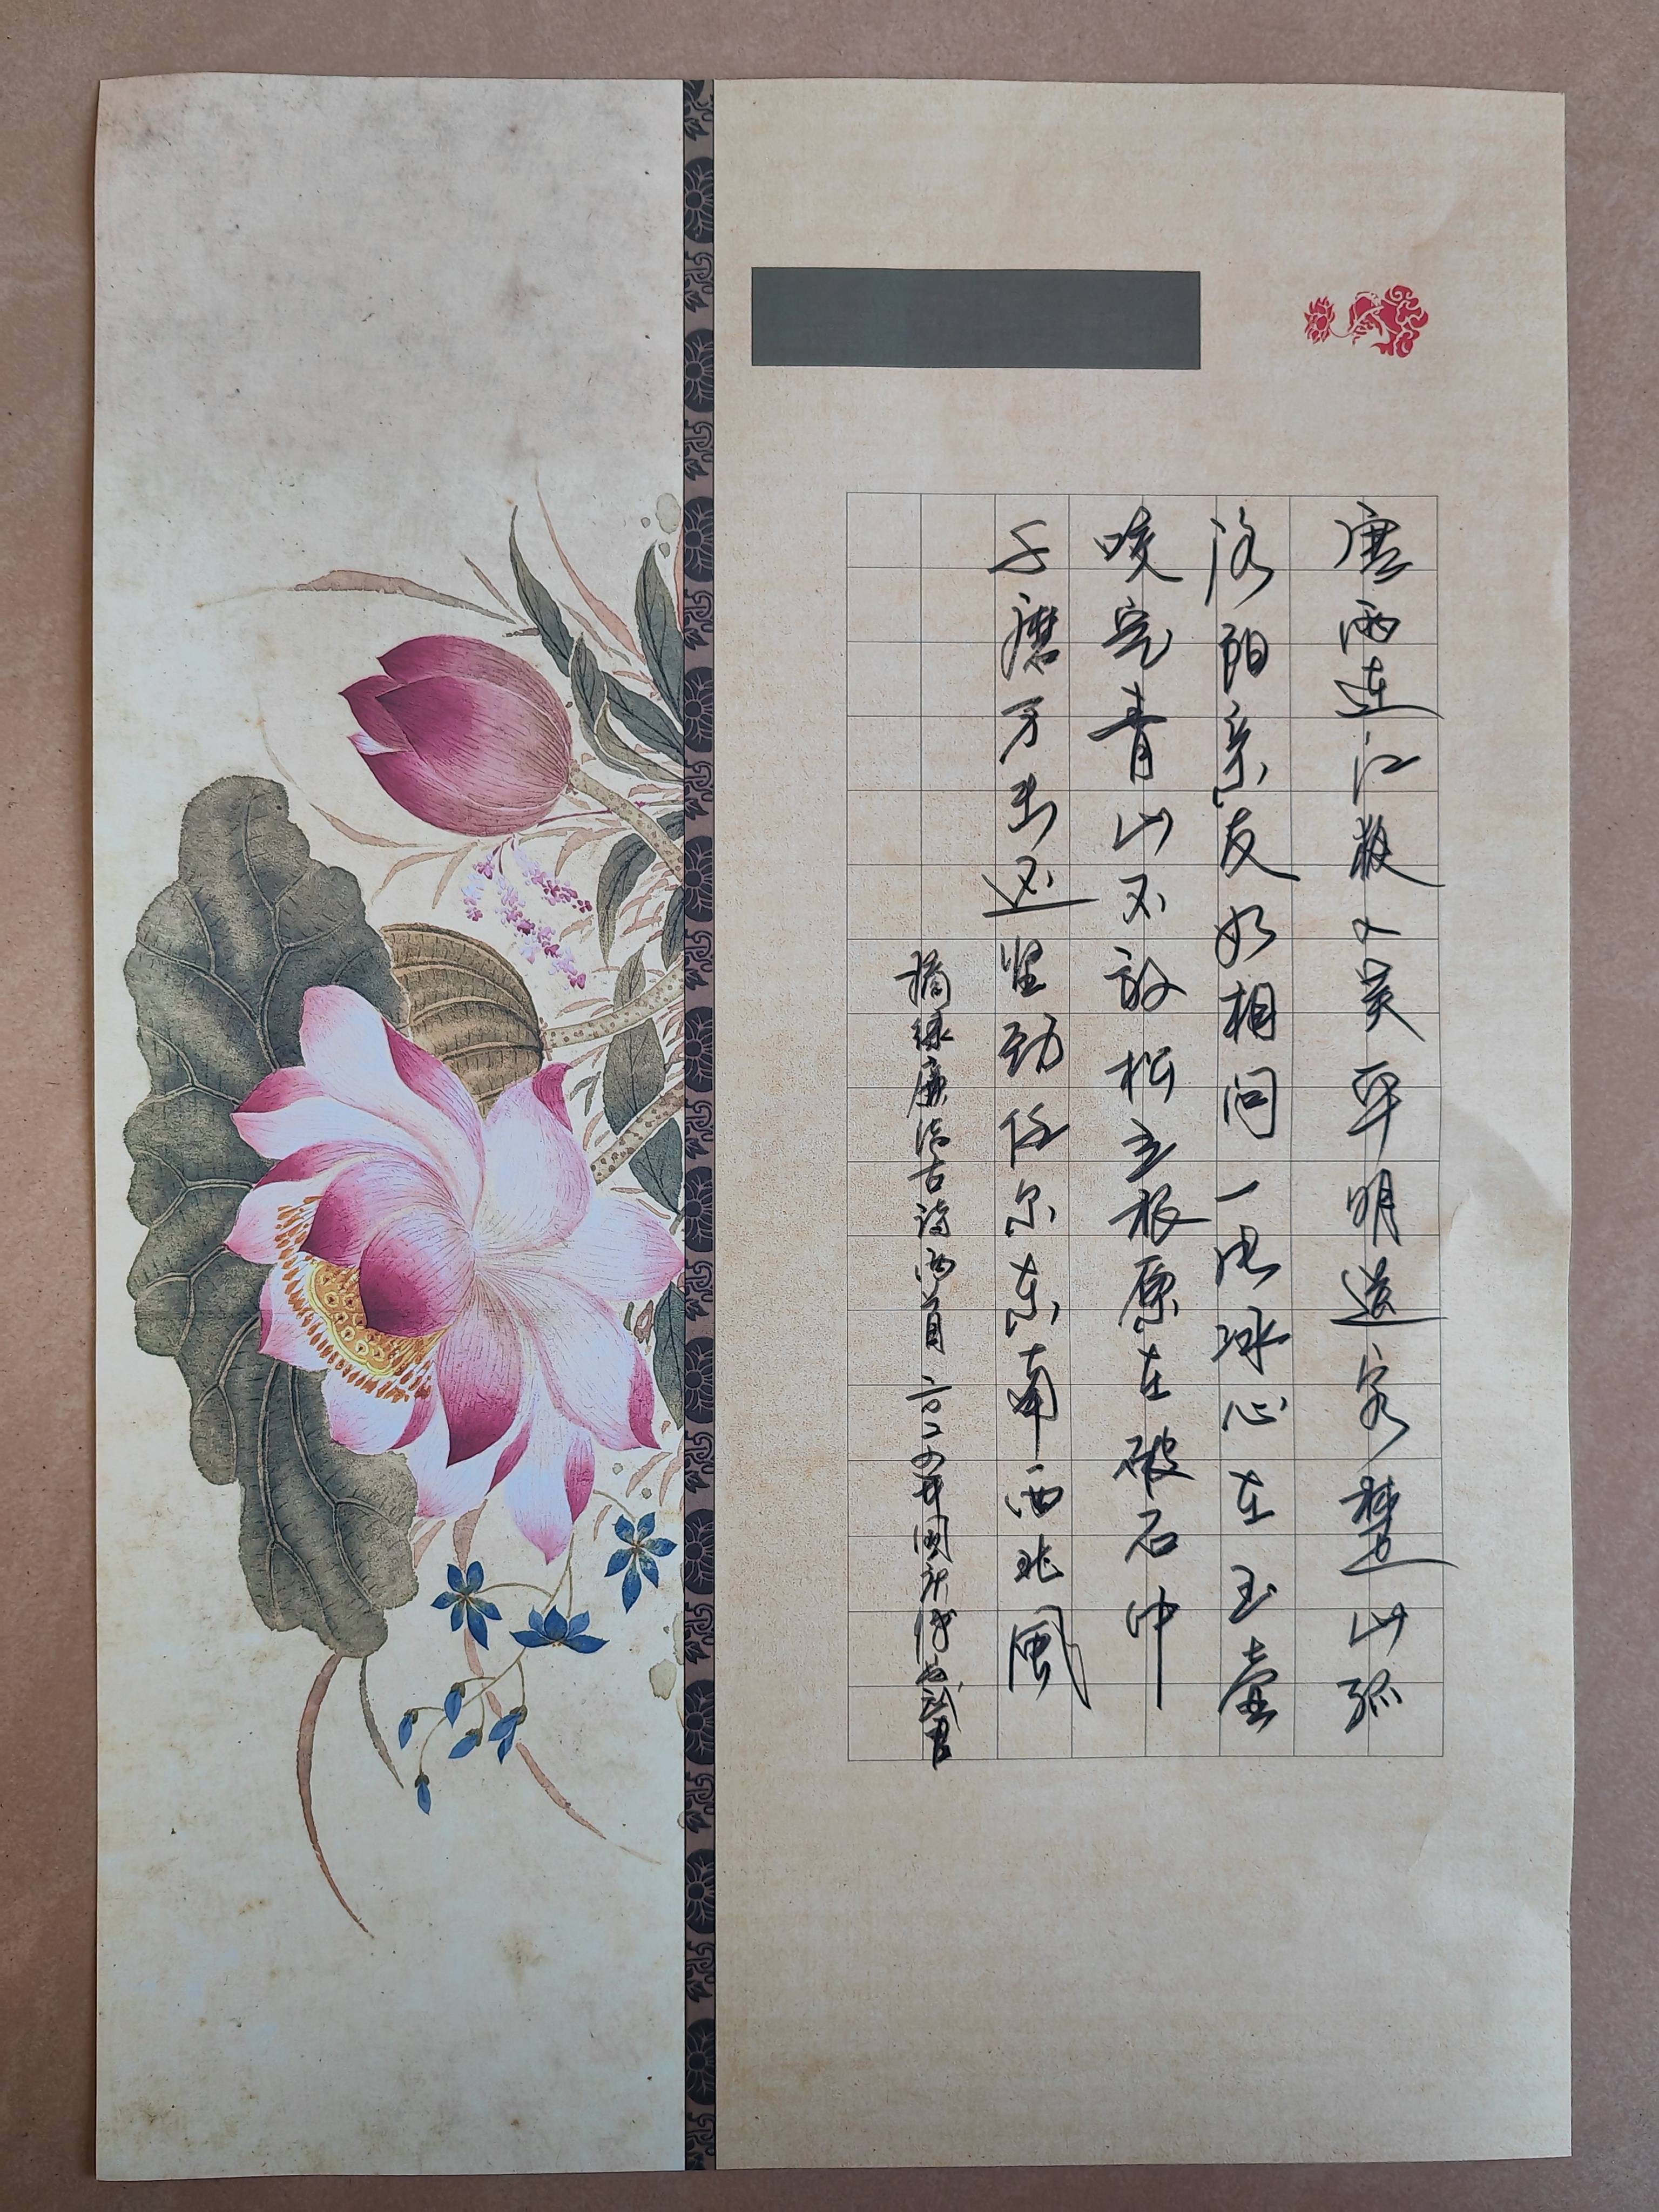 寒雨连江夜入吴平明送客楚山孤
洛阳亲友如相问一片冰心在玉壶
咬定青山不放松立根原在破石中
千磨万击还坚劲任尔东南西北风
摘录廉洁古诗两首 年国庆 书